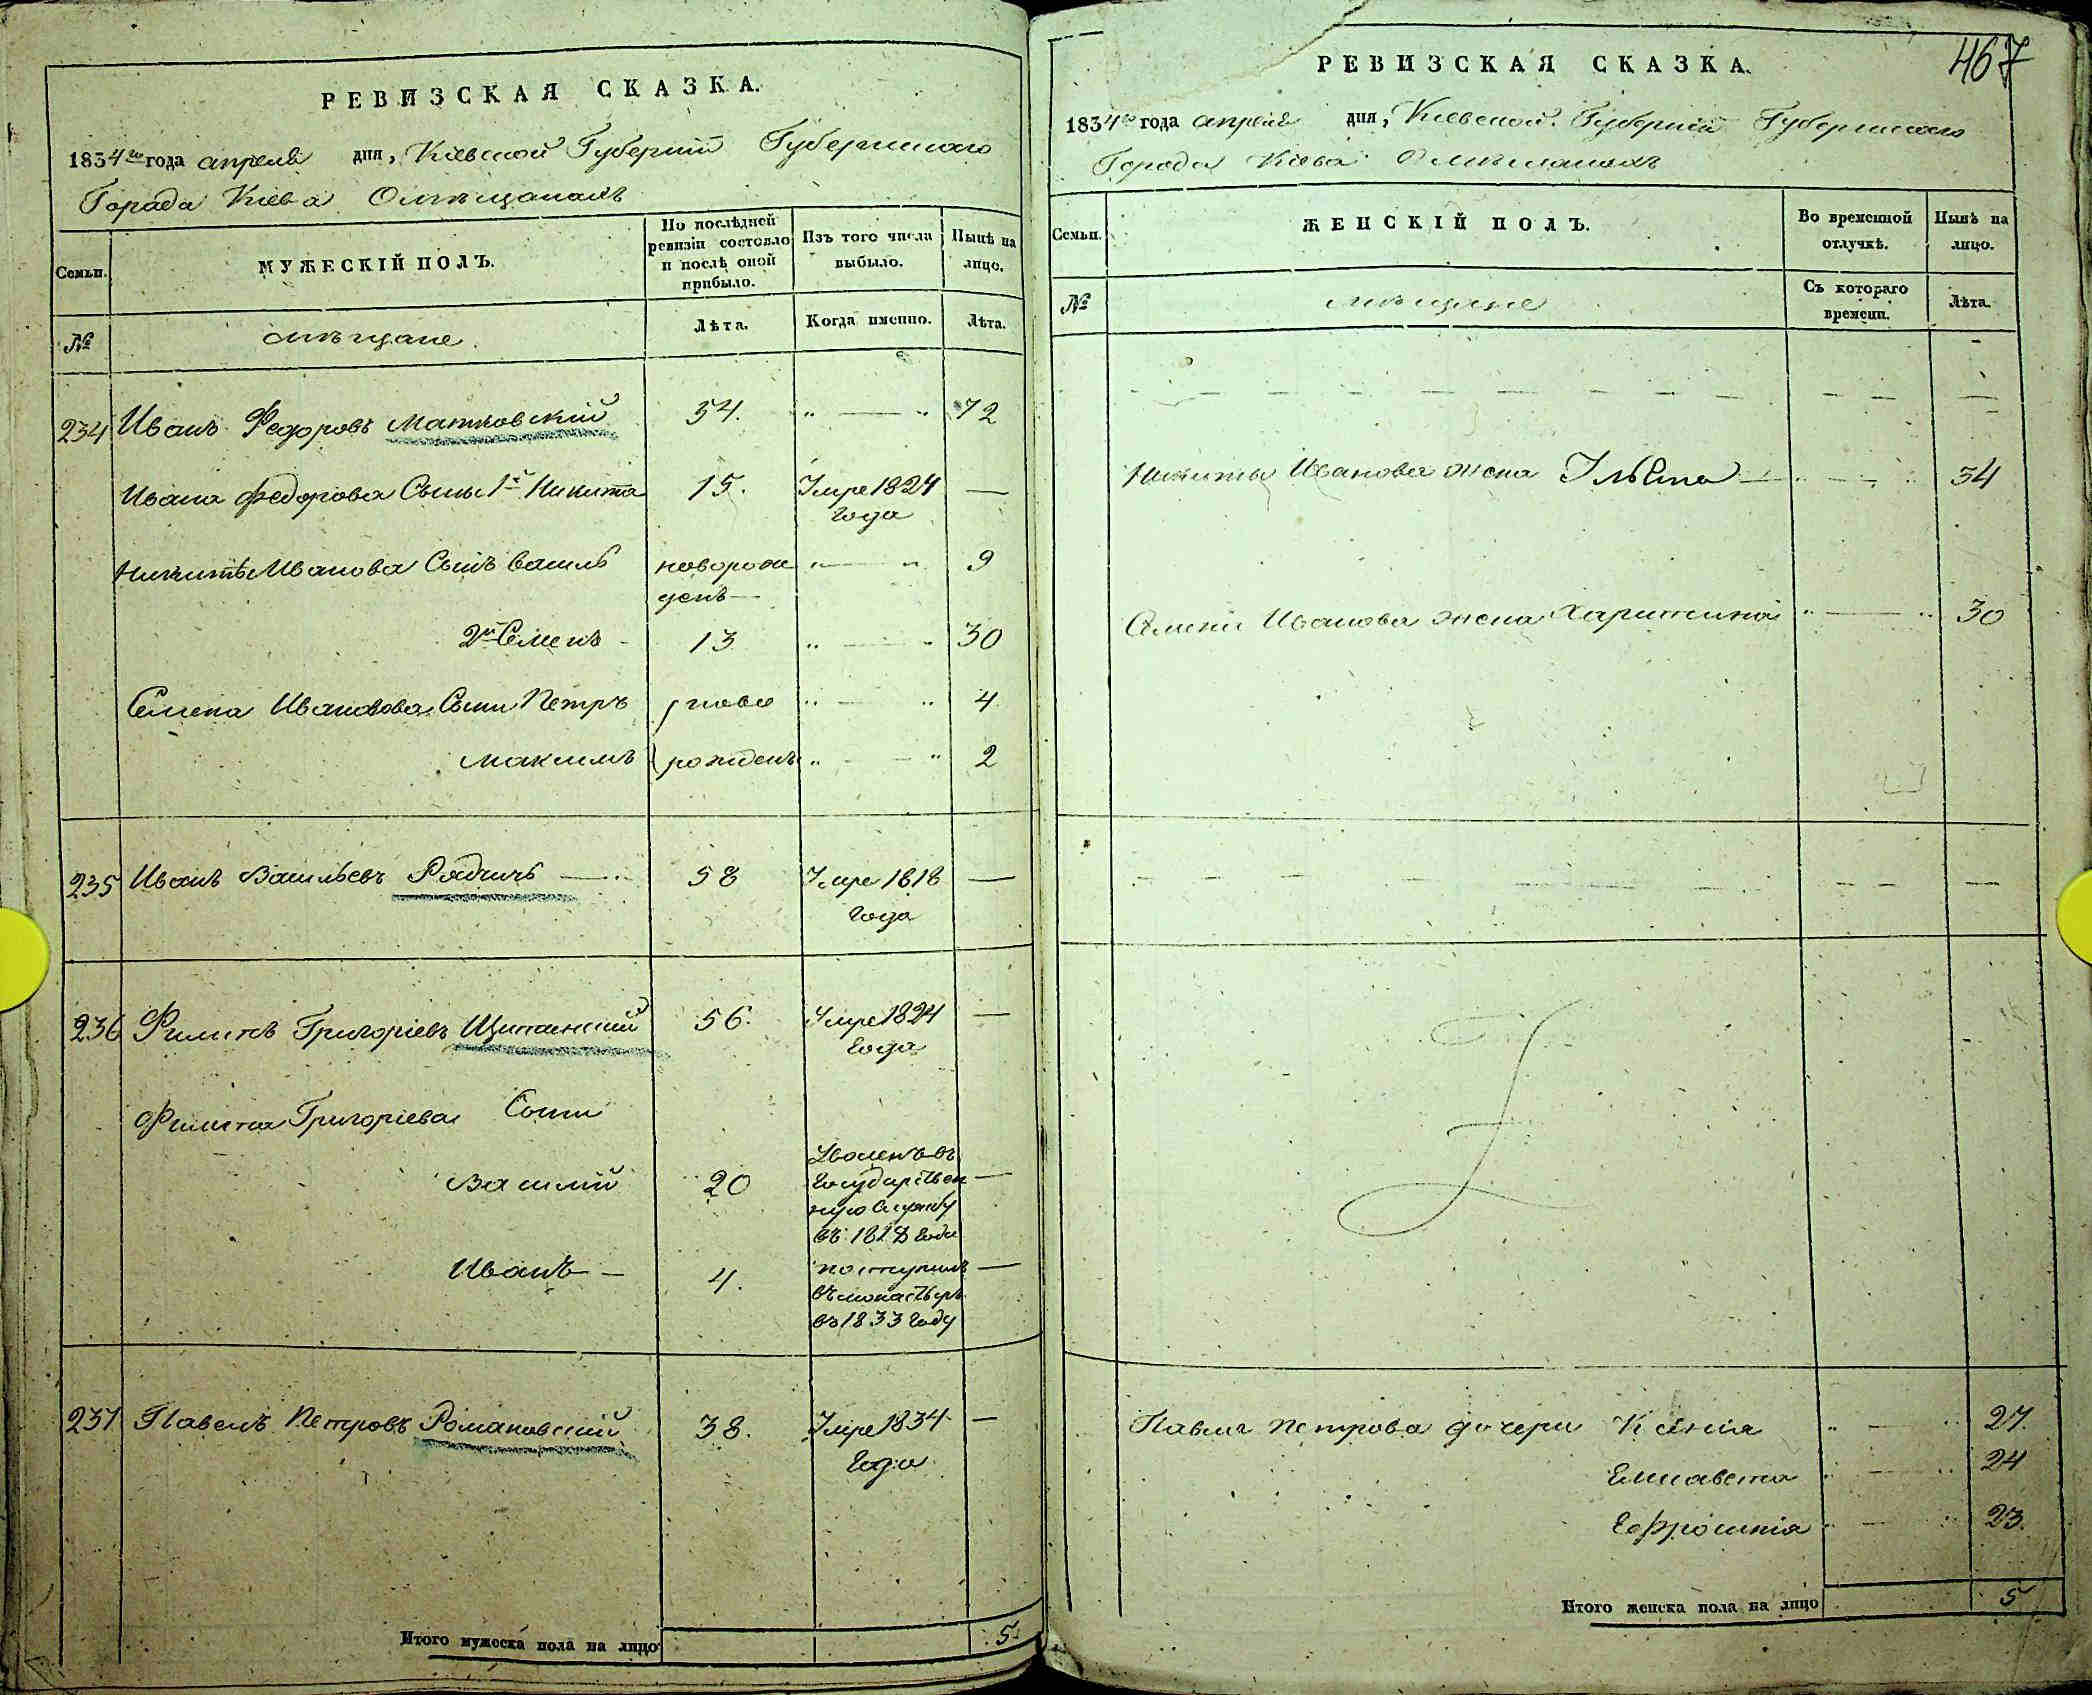 РЕВИЗСКАЯ СКАЗКА.
1834го года апреля дня, Кіевской Губерніи Губернскаго
Города Кіева Омѣщанахъ
Семьи. МУЖЕСКІЙ ПОЛЪ. По послѣдней ревизіи состояло и послѣ оной прибыло. Изъ того числа выбыло. Нынѣ на лицо.
№ мѣщане Лѣта. Когда именно. Лѣта.
234 Иванъ Федоровъ Матковский 54. 72
Ивана Федорова Сыны 1й Никита 15. Умре 1824 —
года
Никиты Иванова Сынъ Василь новорож 9
денъ —
2й Семенъ 13 30
Семена Иванова Сыны Петръ ново 4
Максимъ рожденъ 2
235 Иванъ Васильевъ Радичъ 58 Умре 1818 —
года
236 Филипъ Григоріевъ 56. Умре 1824 —
года
Филипа Григоріева Сыны
Василій 20 Уволенъ въ —
Государствен
ную Службу
въ 1828 году
Иванъ — 4. поступилъ —
въ монастырь
въ 1833 году
237 Павелъ Петровъ Романовский 38. Умре 1834 —
года
Итого мужеска пола на лицо 5
467
РЕВИЗСКАЯ СКАЗКА.
1834го года апреля дня, Кіевской Губерніи Губернскаго
Города Кіева Омѣщанахъ
Семьи. ЖЕНСКІЙ ПОЛЪ. Во временной отлучкѣ. Нынѣ на лицо.
№ мѣщане Съ котораго времени. Лѣта.
Никиты Иванова жена 34
Семена Иванова жена Харитина 30
Павла Петрова дочери Ксенія 27.
Елисавета 24
Ефросинія 23.
Итого женска пола на лицо 5